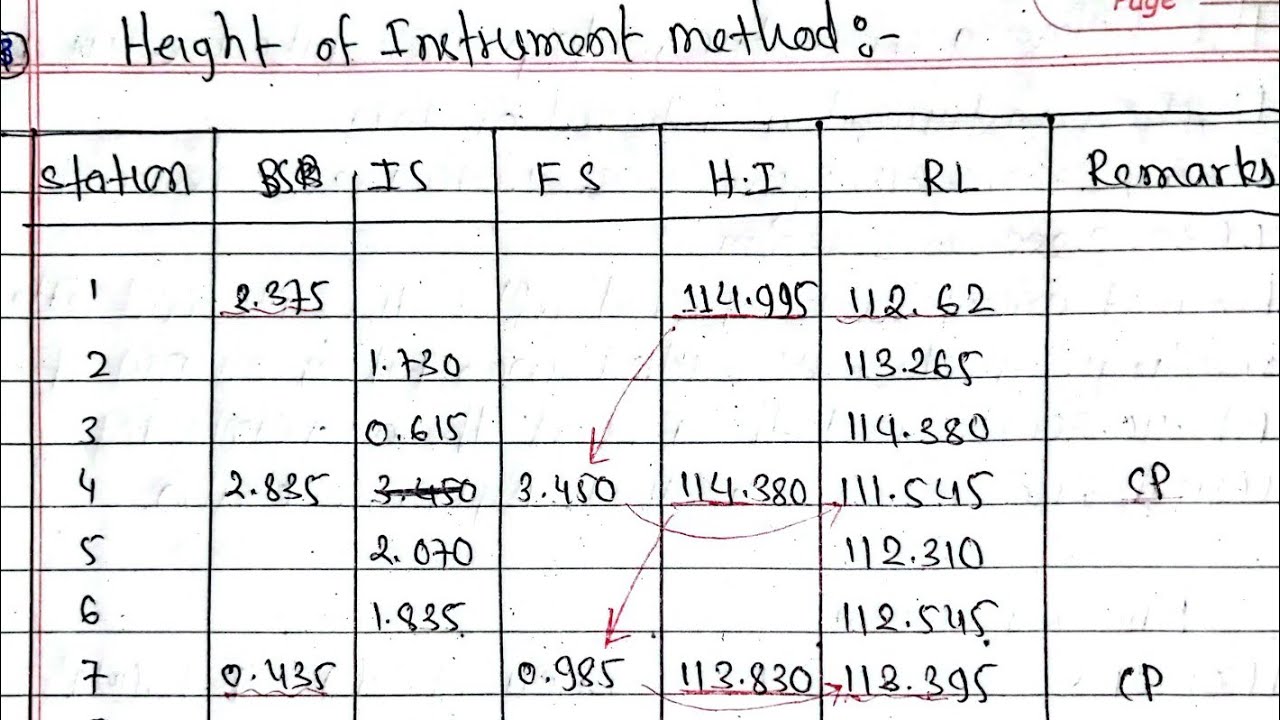 Page
Height of Instrument method :-
Station BS IS FS H.I RL Remarks
1 2.375 114.995 112.62
2 1.730 113.265
3 0.615 114.380
4 2.835 3.450 3.450 114.380 111.545 CP
5 2.070 112.310
6 1.835 112.545
7 0.435 0.985 113.830 113.395 CP